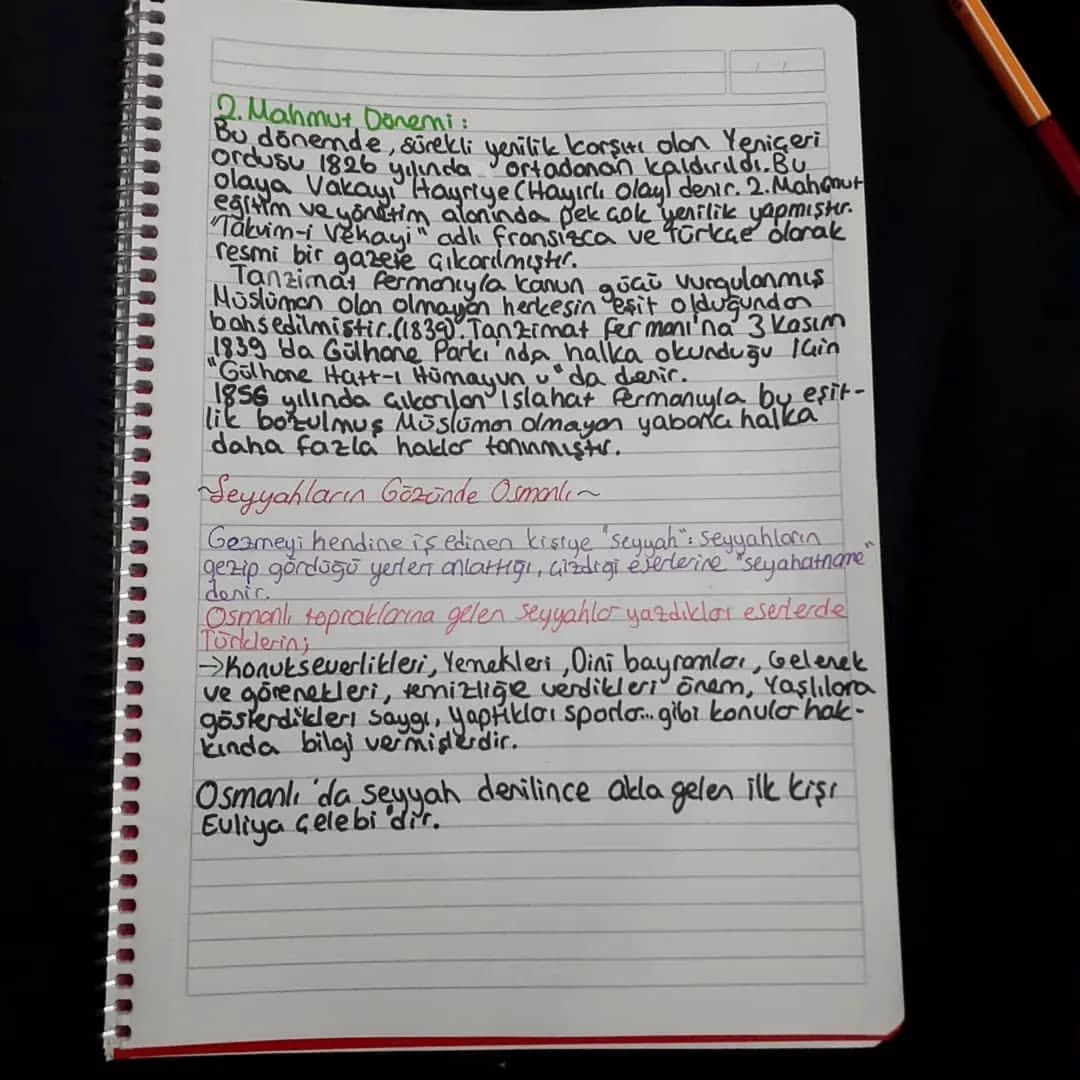 2. Mahmut Dönemi:
Bu dönemde, sürekli yenilik karşıtı olan Yeniçeri
ordusu 1826 yılında ortadanan kaldırıldı. Bu
olaya Vakayı Hayriye (Hayırlı olay) denir. 2. Mahmut
eğitim ve yönetim alanında pek çok yenilik yapmıştır.
"Takvim-i Vekayi" adlı fransızca ve Türkçe olarak
resmi bir gazete çıkarılmıştır.
Tanzimat fermanıyla kanun gücü vurgulanmış
Müslüman olan olmayan herkesin eşit olduğundan
bahsedilmiştir. (1839). Tanzimat fermanı'na 3 Kasım
1839 'da Gülhane Parkı'nda halka okunduğu için
"Gülhane Hatt-ı Hümayun u" da denir.
1856 yılında çıkarılan Islahat fermanıyla bu eşit-
lik bozulmuş Müslüman olmayan yabancı halka
daha fazla haklar tanınmıştır.
~Seyyahların Gözünde Osmanlı~
Gezmeyi hendine iş edinen kişiye "seyyah": seyyahların
gezip gördüğü yerleri anlattığı, çizdiği eserlerine "seyahatname"
denir.
Osmanlı topraklarına gelen seyyahlar yazdıkları eserlerde
Türklerin;
→Konukseverlikleri, Yemekleri, Dini bayramları, Gelenek
ve görenekleri, temizliğe verdikleri önem, Yaşlılara
gösterdikleri saygı, yaptıkları sporlar... gibi konular hak-
kında bilgi vermişlerdir.
Osmanlı 'da seyyah denilince akla gelen ilk kişi
Evliya Çelebi 'dir.